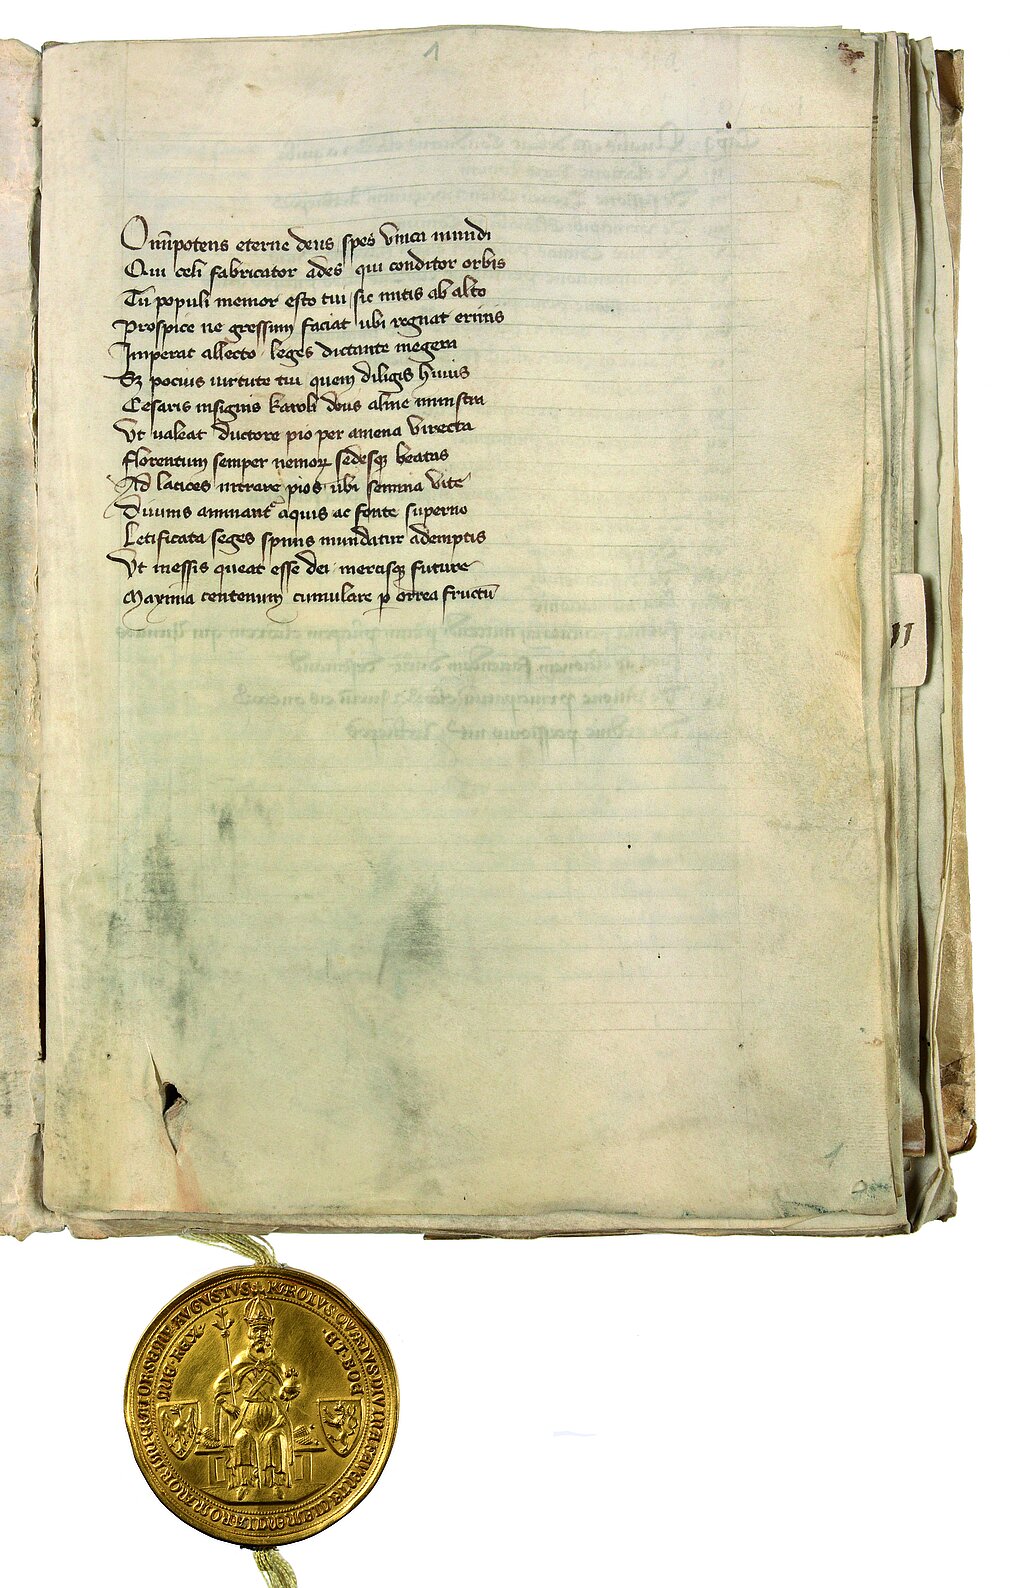 1
Omīpotens eterne deus spes vnica mundi
Qui celi fabricator ades qui conditor orbis
Tu populi memor esto tui sic mitis ab alto
Prospice ne gressum faciat ubi regnat erinis
Imperat allecto leges dictante megera
Sꝫ pocius uirtute tui quem diligis huius
Cesaris insignis karoli deus alme ministra
Vt ualeat ductore pio per amena virecta
florentum semper nemoꝝ sedesqꝫ beatas
Ad latices intrare pios ubi semina vite
Diuinis animant᷑ aquis ac fonte superno
Letificata seges spinis mundatur ademptis
Vt messis queat esse dei mercisqꝫ future
Maxima centenum cumulare ꝑ orrea fructū
II
1
KAROLVS QVARTVS DIVINA FAVENTE CLEMENCIA ROMANOR IMPERATOR SEMP AVGVSTVS
ET BOE
MIE REX